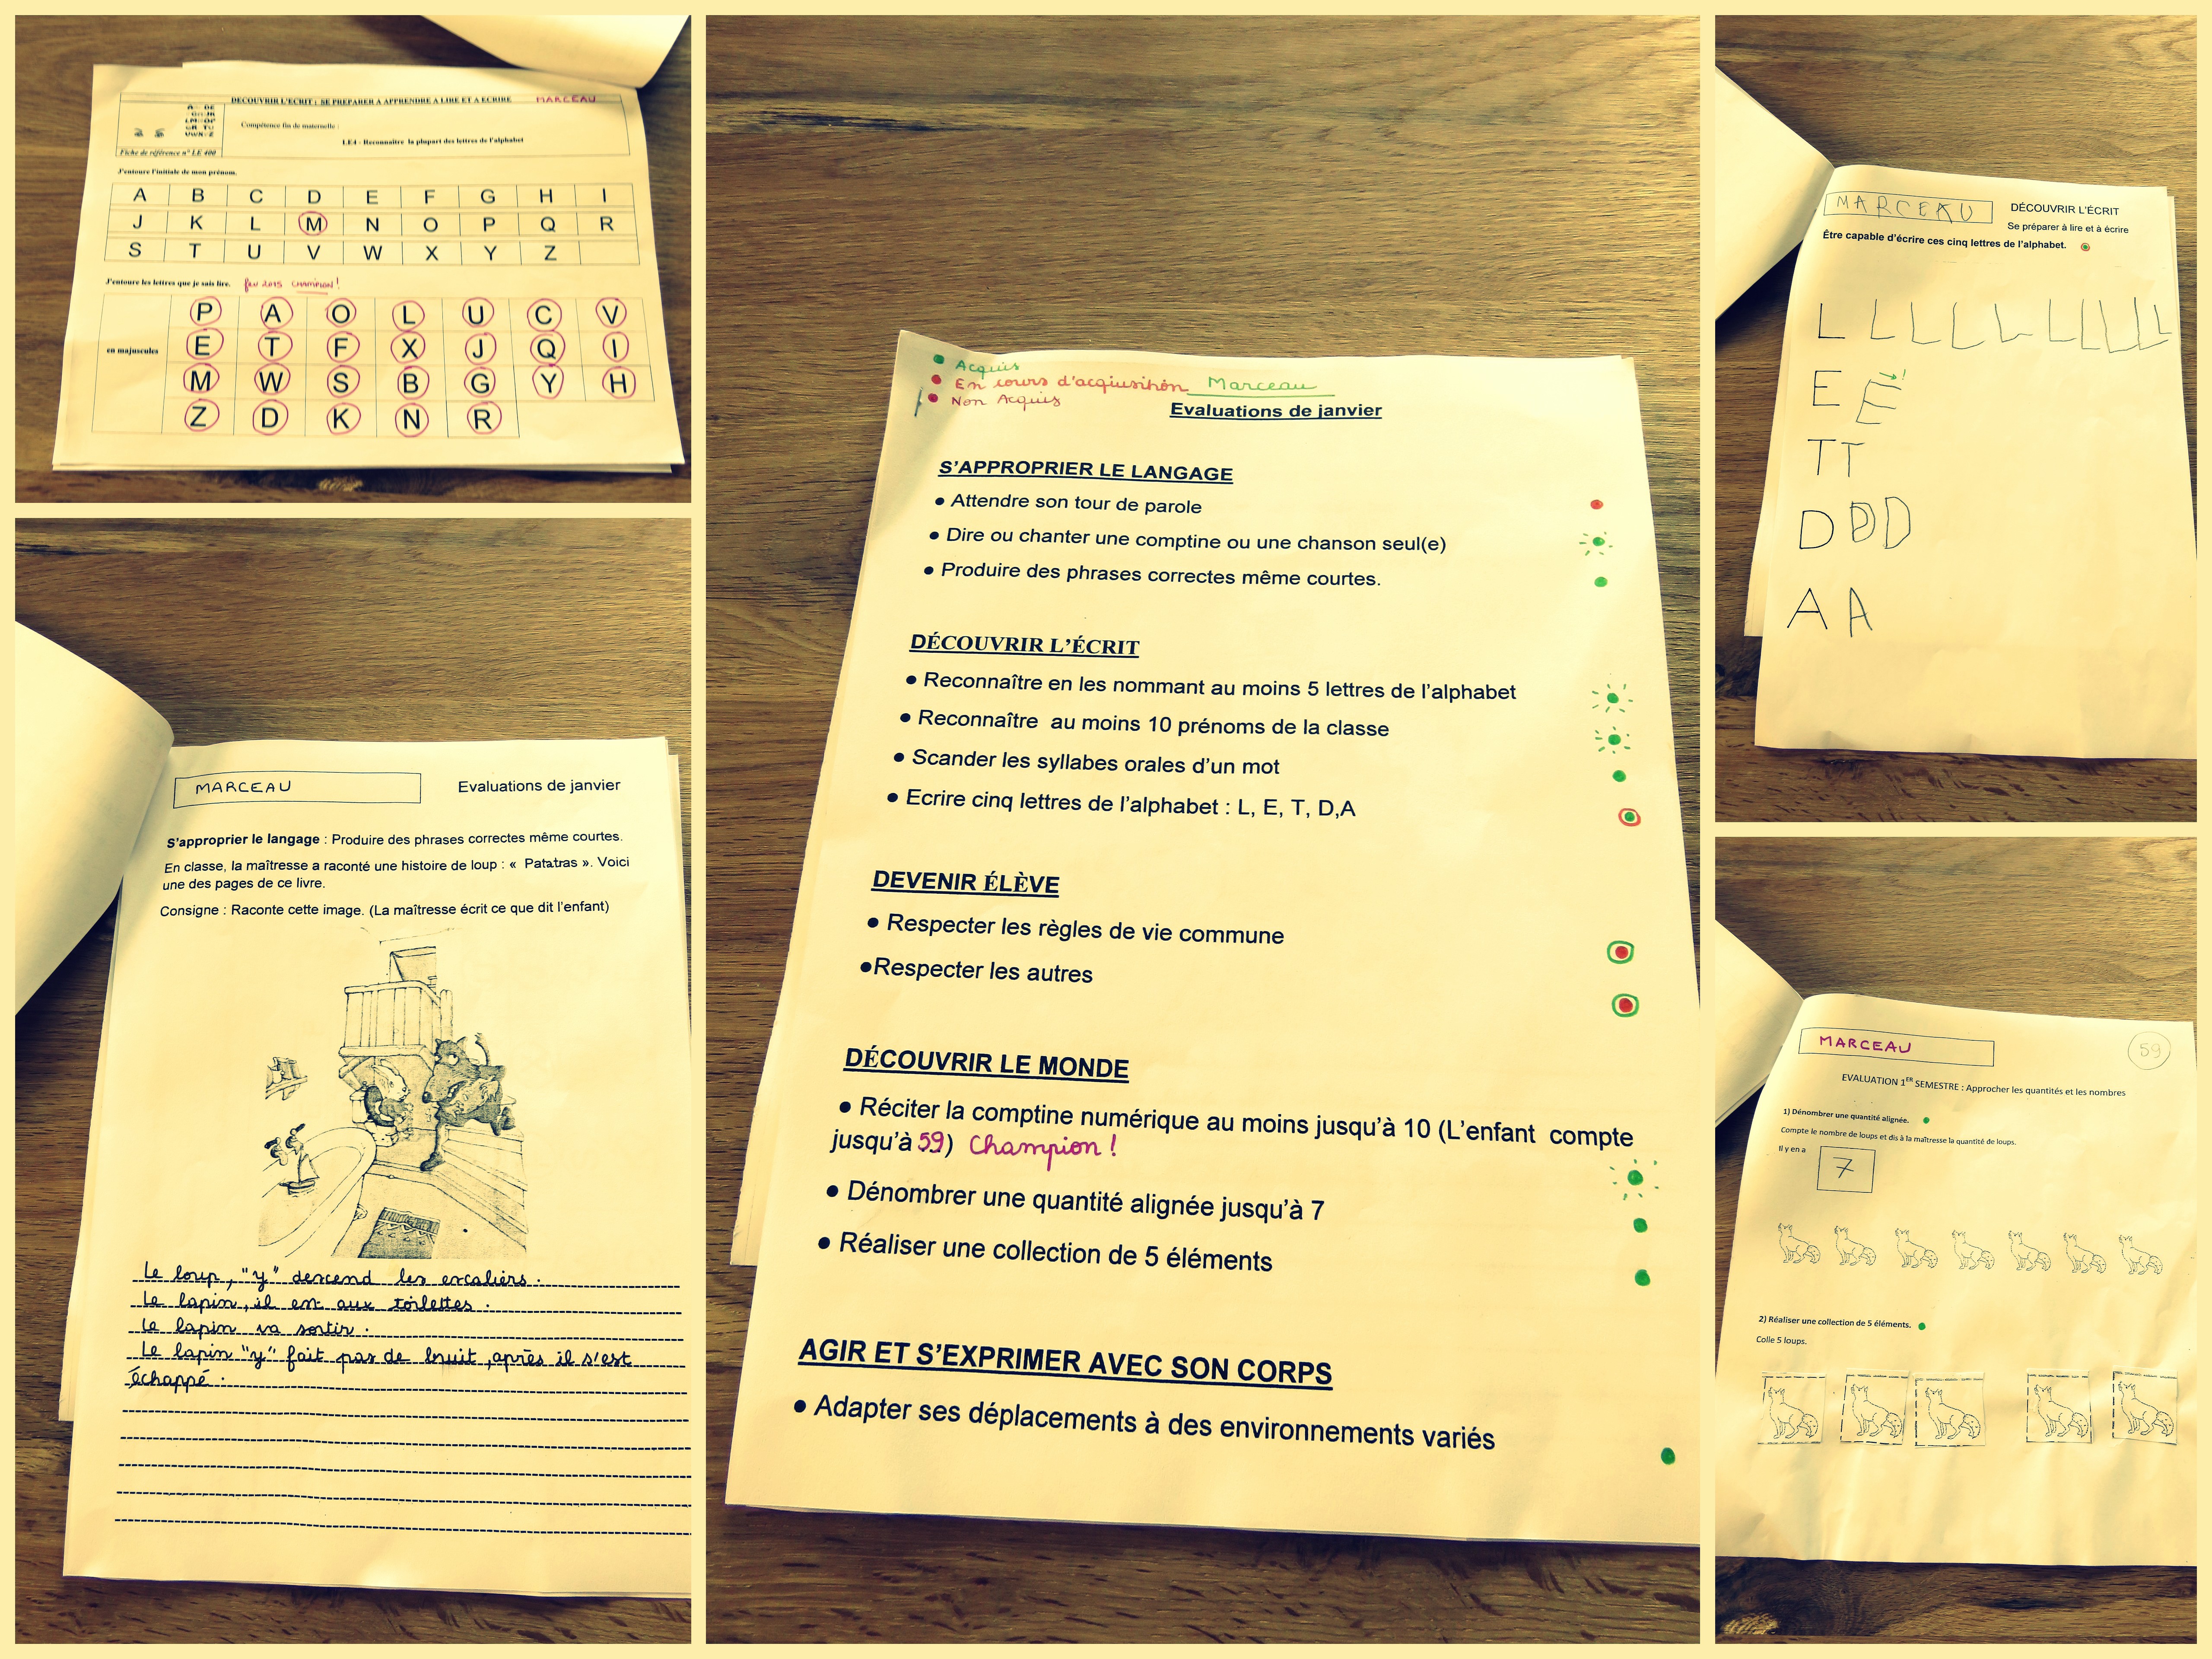 DECOUVRIR L'ECRIT : SE PREPARER A APPRENDRE A LIRE ET A ECRIRE MARCEAU
Compétence fin de maternelle :
LE4 - Reconnaître la plupart des lettres de l'alphabet
Fiche de référence n° LE 400
J'entoure l'initiale de mon prénom.
A B C D E F G H I
J K L M N O P Q R
S T U V W X Y Z
J'entoure les lettres que je sais lire. fev 2015 CHAMPION !
P A O L U C V
en majuscules E T F X J Q I
M W S B G Y H
Z D K N R
MARCEAU Evaluations de janvier
S'approprier le langage : Produire des phrases correctes même courtes.
En classe, la maîtresse a raconté une histoire de loup : « Patatras ». Voici
une des pages de ce livre.
Consigne : Raconte cette image. (La maîtresse écrit ce que dit l'enfant)
Le loup, "y" descend les escaliers.
Le lapin, il est aux toilettes.
Le lapin va sortir.
Le lapin "y" fait pas de bruit, après il s'est
échappé.
Acquis
En cours d'acqiusition Marceau
Non Acquis
Evaluations de janvier
S'APPROPRIER LE LANGAGE
• Attendre son tour de parole
• Dire ou chanter une comptine ou une chanson seul(e)
• Produire des phrases correctes même courtes.
DÉCOUVRIR L'ÉCRIT
• Reconnaître en les nommant au moins 5 lettres de l'alphabet
• Reconnaître au moins 10 prénoms de la classe
• Scander les syllabes orales d'un mot
• Ecrire cinq lettres de l'alphabet : L, E, T, D,A
DEVENIR ÉLÈVE
• Respecter les règles de vie commune
•Respecter les autres
DÉCOUVRIR LE MONDE
• Réciter la comptine numérique au moins jusqu'à 10 (L'enfant compte
jusqu'à 59) Champion !
• Dénombrer une quantité alignée jusqu'à 7
• Réaliser une collection de 5 éléments
AGIR ET S'EXPRIMER AVEC SON CORPS
• Adapter ses déplacements à des environnements variés
MARCEAU DÉCOUVRIR L'ÉCRIT
Se préparer à lire et à écrire
Être capable d'écrire ces cinq lettres de l'alphabet.
L L L L L L L L L
E E !
T T
D D D
A A
MARCEAU 59
EVALUATION 1ER SEMESTRE : Approcher les quantités et les nombres
1) Dénombrer une quantité alignée.
Compte le nombre de loups et dis à la maîtresse la quantité de loups.
Il y en a 7
2) Réaliser une collection de 5 éléments.
Colle 5 loups.